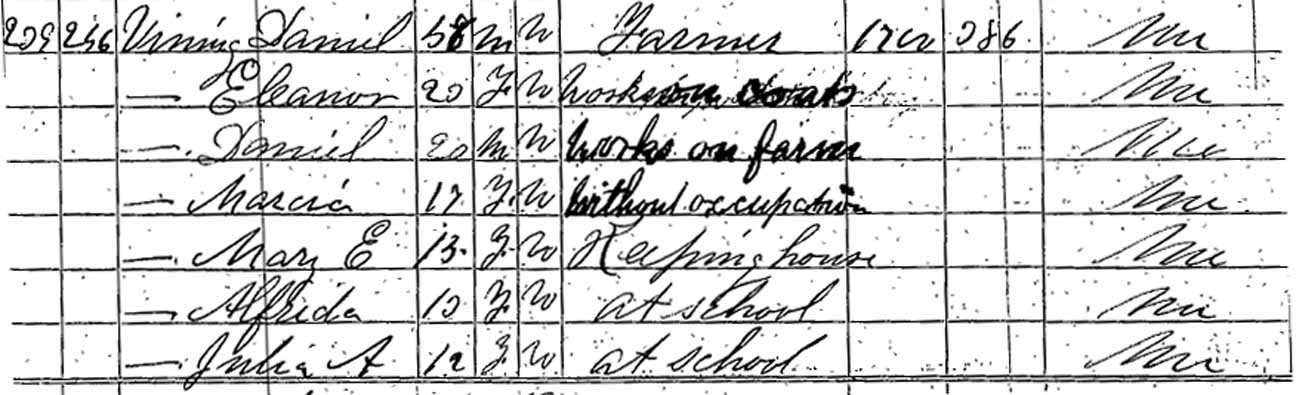 209 256 Vining Daniel 58 M W Farmer 1700 386 Me
— Eleanor 20 F W Works on coats Me
— Daniel 20 M W Works on farm Me
— Marcia 17 F W Without occupation Me
— Mary E 13 F W Keeping house Me
— Alfrida 13 F W at school Me
— Julia A 12 F W at school Me